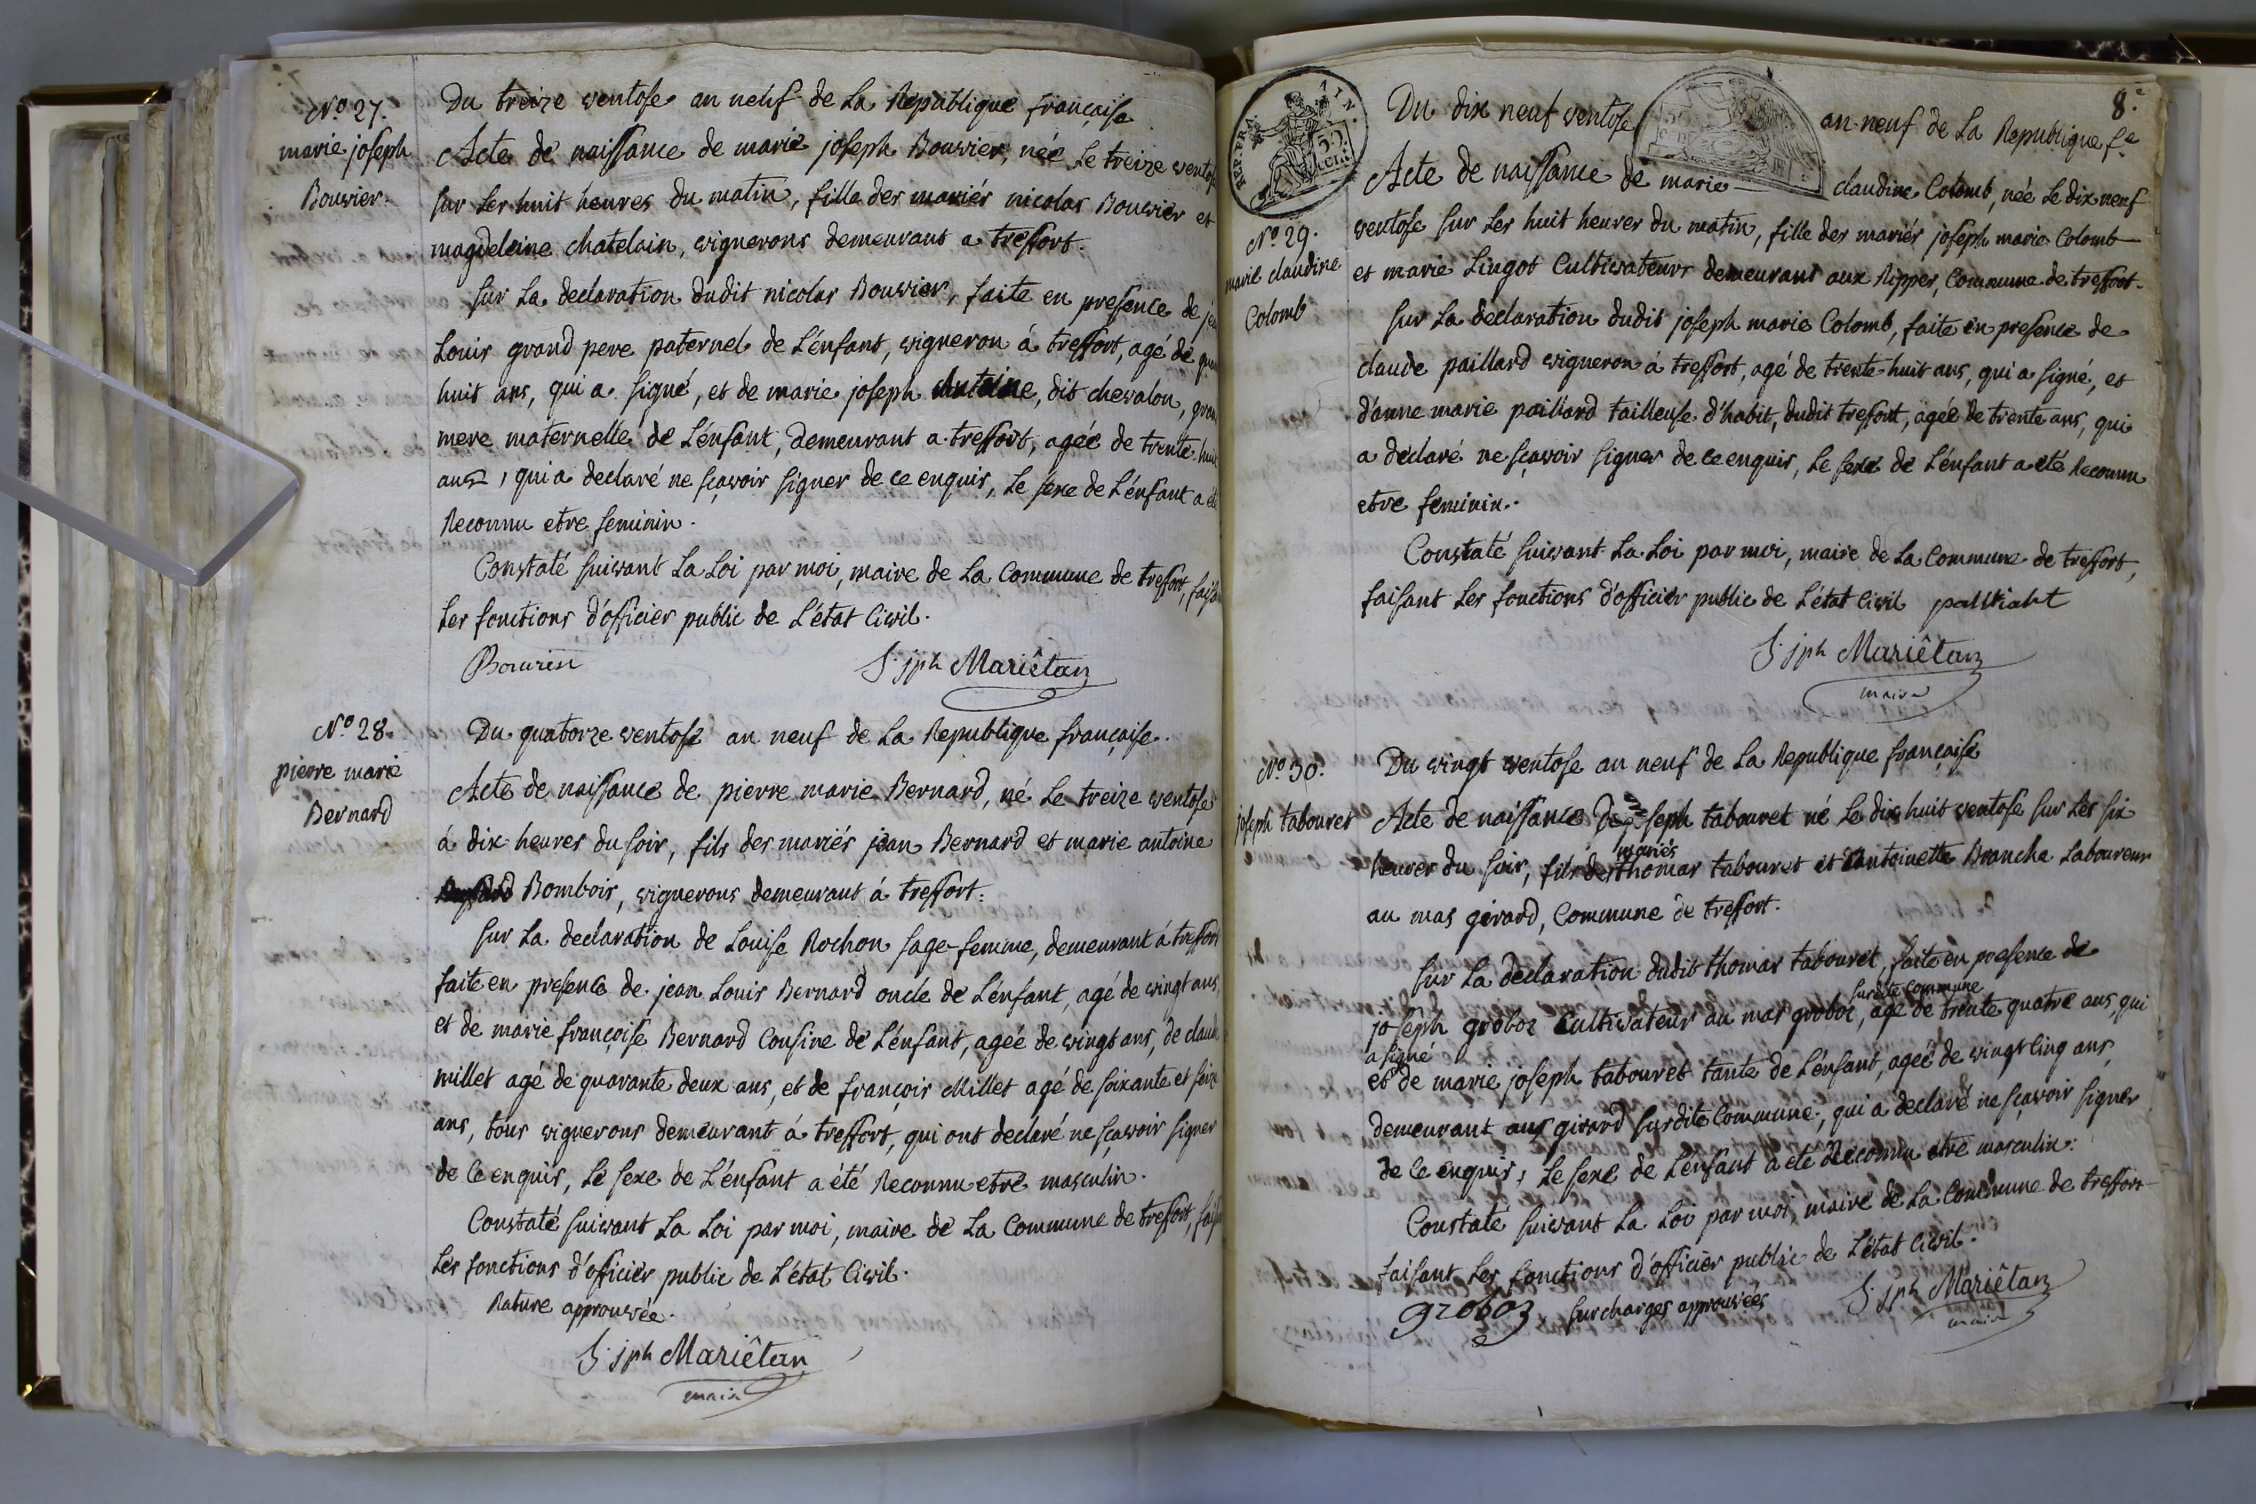 7.
N.o 27.
marie joseph
Bouvier.
Du treize ventose an neuf de la Republique française
Acte de naissance de marie joseph Bouvier, née le treize ventose
sur les huit heures du matin, fille des mariés nicolas Bouvier et
magdeleine chatelain, vignerons demeurant a treffort.
Sur la declaration dudit nicolas Bouvier, faite en presence de
Louis grand pere paternel de l'énfant, vigneron á treffort, agé de
huit ans, qui a signé, et de marie joseph Antoine, dit chevalon,
mere maternelle de l'énfant, demeurant a treffort, agée de trente huit
ans, qui a declaré ne sçavoir signer de ce enquis, le sexe de l'énfant a été
Reconnu etre feminin.
Constaté suivant la Loi par moi, maire de la Commune de treffort,
les fonctions d'officier public de l'état Civil.
Bouvier S. jph Mariêtan
N.o 28.
pierre marie
Bernard
Du quatorze ventose an neuf de la Republique française.
Acte de naissance de pierre marie Bernard, né le treize ventose
á dix heures du soir, fils des mariés jean Bernard et marie antoine
Bombois, vignerons demeurant á treffort.
Sur la declaration de Louise Rochon sage-femme, demeurant á treffort
faite en presence de jean Louis Bernard oncle de l'énfant, agé de vingt ans,
et de marie françoise Bernard Cousine de l'énfant, ageé de vingt ans, de claude
millet agé de quarante deux ans, et de françois Millet agé de soixante et seize
ans, tous vignerons demeurant á treffort, qui ont declaré ne sçavoir signer
de ce enquis, le sexe de l'énfant a été Reconnu etre masculin.
Constaté suivant la Loi par moi, maire de la Commune de treffort,
les fonctions d'officier public de l'état Civil.
Rature approuvée.
S. jph Mariêtan
maire
8.e
REP. FRA
AIN.
Du dix neuf ventose an neuf de la Republique f.e
N.o 29.
marie claudine
Colomb
Acte de naissance de marie claudine Colomb, née le dix neuf
ventose sur les huit heures du matin, fille des mariés joseph marie Colomb
et marie Lingot Cultivateurs demeurant aux Rippes, Commune de treffort.
Sur la declaration dudit joseph marie Colomb, faite en presence de
claude paillard vigneron á treffort, agé de trente-huit ans, qui a signé, et
d'anne marie paillard tailleuse d'habit, dudit treffort, agée de trente ans, qui
a declaré ne sçavoir signer de ce enquis, le sexe de l'énfant a eté Reconnu
etre feminin.
Constaté suivant la Loi par moi, maire de la Commune de treffort,
faisant les fonctions d'officier public de l'état Civil
S. jph Mariêtan
maire
N.o 30.
joseph tabouret
Du vingt ventose an neuf de la Republique française
Acte de naissance De joseph tabouret né le dix huit ventose sur les six
heures du soir, fils des mariés thomas tabouret et antoinette Branche Laboureur
au mas girard, Commune de treffort.
Sur la declaration dudit thomas tabouret, faite en presence de
joseph groboz Cultivateur au mas groboz, surdite Commune agé de trente quatre ans, qui
a signé
et de marie joseph tabouret tante de l'énfant, ageé de vingt Cinq ans,
demeurant aus girard surdite Commune, qui a declaré ne sçavoir signer
de ce enquis, le sexe de l'énfant a eté Reconnu etre masculin.
Constaté suivant la Loi par moi, maire de la Commune de treffort
faisant les fonctions d'officier public de l'état Civil.
groboz Surcharges approuvées S. jph Mariêtan
maire